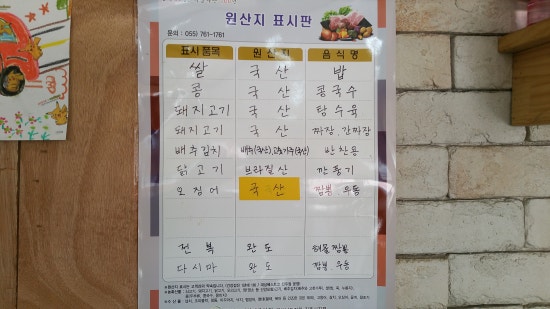 원산지 표시판
문의 : 055) 761-1761
표시품목 원산지 음식명
쌀 국산 밥
콩 국산 콩국수
돼지고기 국산 탕수육
돼지고기 국산 짜장.간짜장
배추김치 배추(국산).고춧가루(국산) 반찬용
닭고기 브라질산 깐풍기
오징어 국산 짬뽕.우동
전복 완도 해물짬뽕
다시마 완도 짬뽕.우동